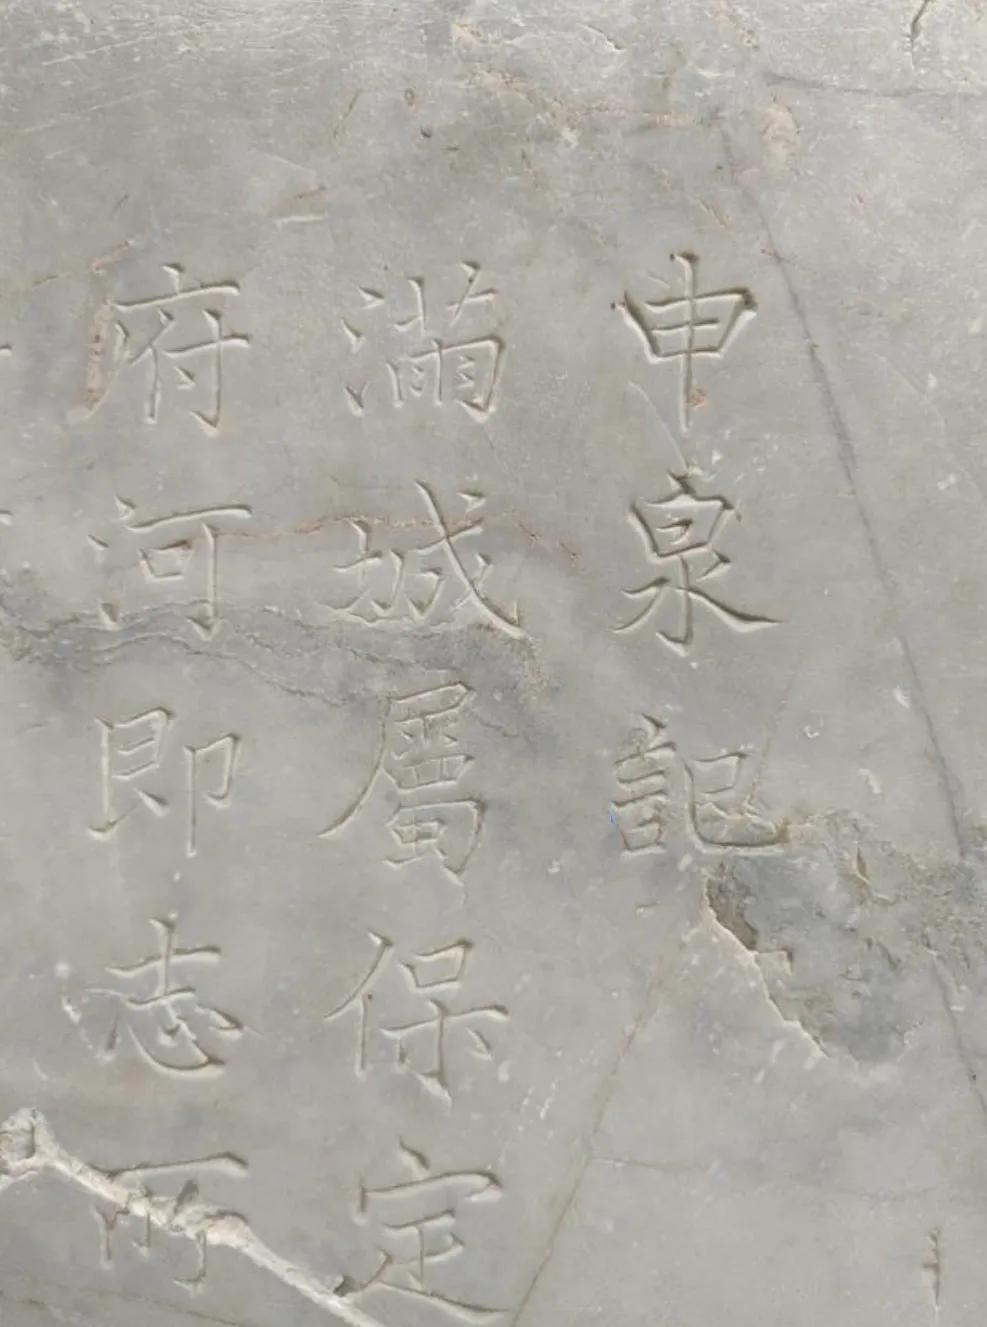 申泉記
滿城屬保定
府河即志所